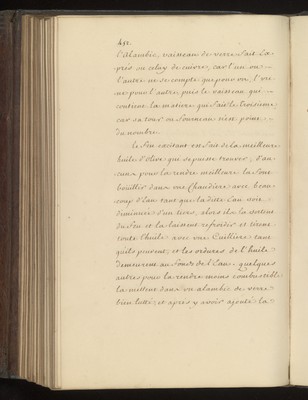 452.
l'alambic, vaisseau de verre fait La
pris ou celuy de cuivre, car l'un ou
l'autre ne se compte que pour un, l'vne
ne pour l'autre, puis le vaisseau qui
contient la matiere qui fait le troisieme
car sa tour ou fourneau n'est point
du nombre.
Le feu excitant est fait de la meilleure
huile d'olive qui se puisse trouver, d'au-
cuns pour la rendre meilleure la font
bouillir dans une Chaudiere avec beau-
coup d'Eau tant que laditte Eau soit
diminuée d'un tiers, alors ils la ostent
du feu et la laissent refroidir et tirent
toute l'huile avec une Cuilliere tant
quils peuvent, et les ordures de l'huile
demeurent au fonds de l'Eau. quelques
autres pour la rendre moins combustible
la mettent dans un alambic de verre
bien lutté, et après y avoir ajouté la